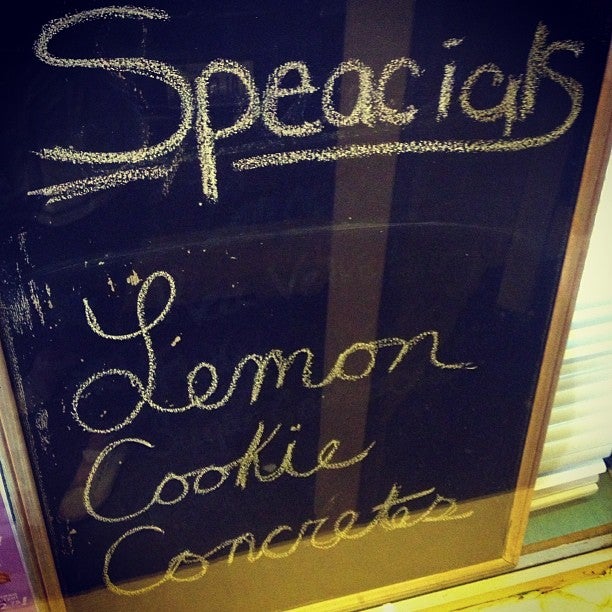 Speacials
Lemon
Cookie
Concretes